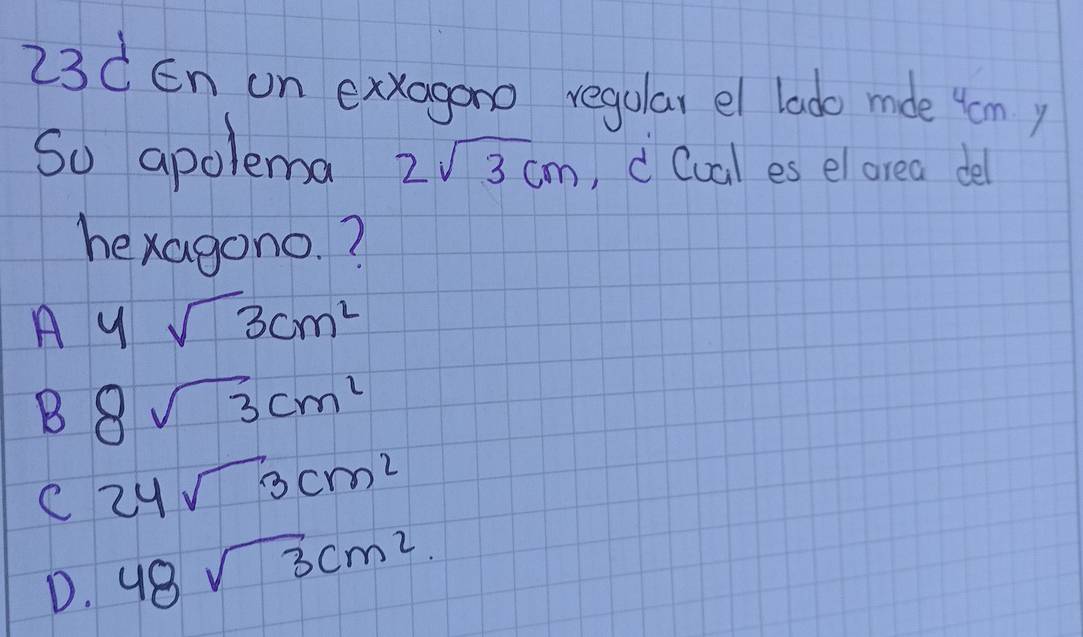 23 ¿ En un exxagono regular el lado mide 4cm y
Su apolema 2√3 cm, ¿ Cual es el area del
hexagono. ?
A 4 √3cm²
B 8 √3cm²
C 24 √3cm²
D. 48 √3cm².